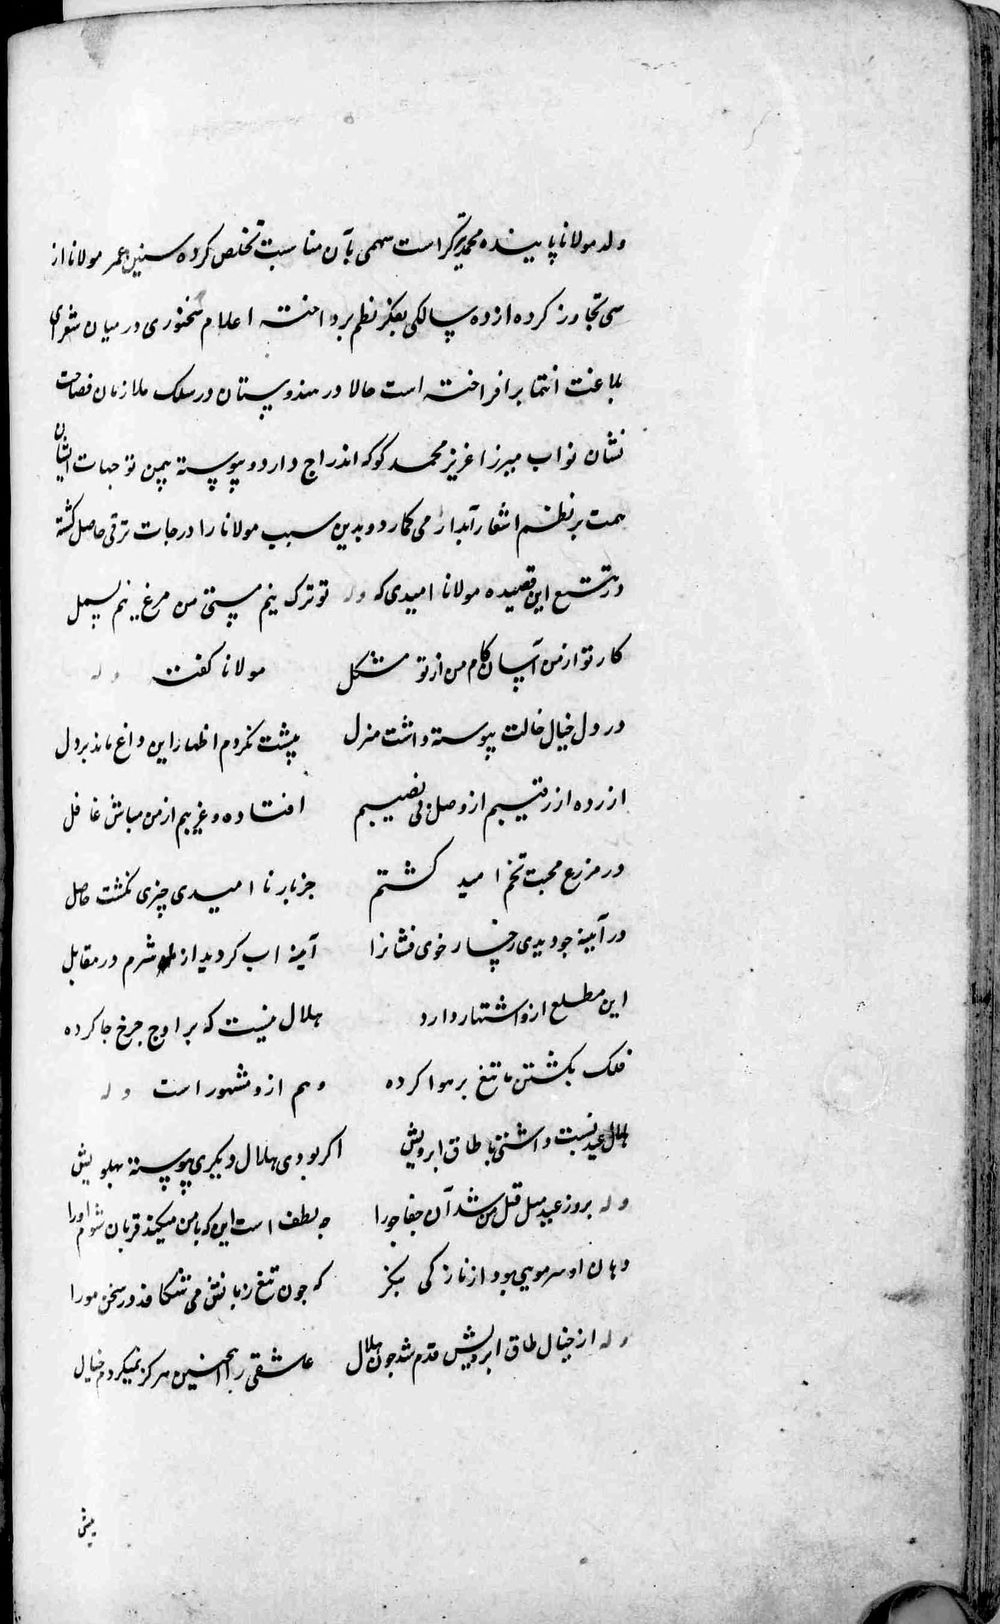 ولد مولانا پاینده محمد تیرگر است سهمی بآن مناسبت تخلص کرده سنین عمر مولانا از
سی تجاوز کرده از ده سالکی بفکر نظم برداخته اعلام سخنوری درمیان شعرای
بلاغت انتما برافراخته است حالا در هندوستان در سلک ملازمان فصاحت
نشان نواب میرزا عزیز محمد کوکه اندراج دارد و پیوسته بیمن توجهات ایشان
همت بر نظم اشعار آبدار می کمارد و بدین سبب مولانا را درجات ترقی حاصل کشته
در تتبع این قصیده مولانا امیدی که وله تو ترک نیم مستی من مرغ نیم بسمل
کار تو از من آسان کام من از تو مشکل مولانا کفت وله
در دل خیال خالت پیوسته داشت منزل پیشت نکردم اظهار این داغ ماند بر دل
ازرده از رقیبم از وصل بی نصیبم افتاده و غریبم از من مباش غافل
در مزرع محبت تخم امید کشتم جز بار نا امیدی چیزی نکشت حاصل
در آیینه جو دیدی رخسار خوی فشانرا آینه اب کردید از شرم در مقابل
این مطلع ازو اشتهار دارد هلال نیست که بر اوج جرخ جا کرده
فلک بکشتن ما تیغ بر هوا کرده وهم ازو مشهور است وله
هلال عید نسبت داشتی با طاق ابرویش اکر بودی هلال دیکری پیوسته پهلویش
وله بروز عید میل قتل من شد آن جفاجو را چه لطف است این که با من میکند قربان شوم او را
دهان او سر مویی بود از نازکی بنکر که جون تیغ زبانش می شکافد در سخن مو را
وله از خیال طاق ابرویش قدم شد جون هلال عاشقی را اینچنین هرکز نمیکردم خیال
پیش